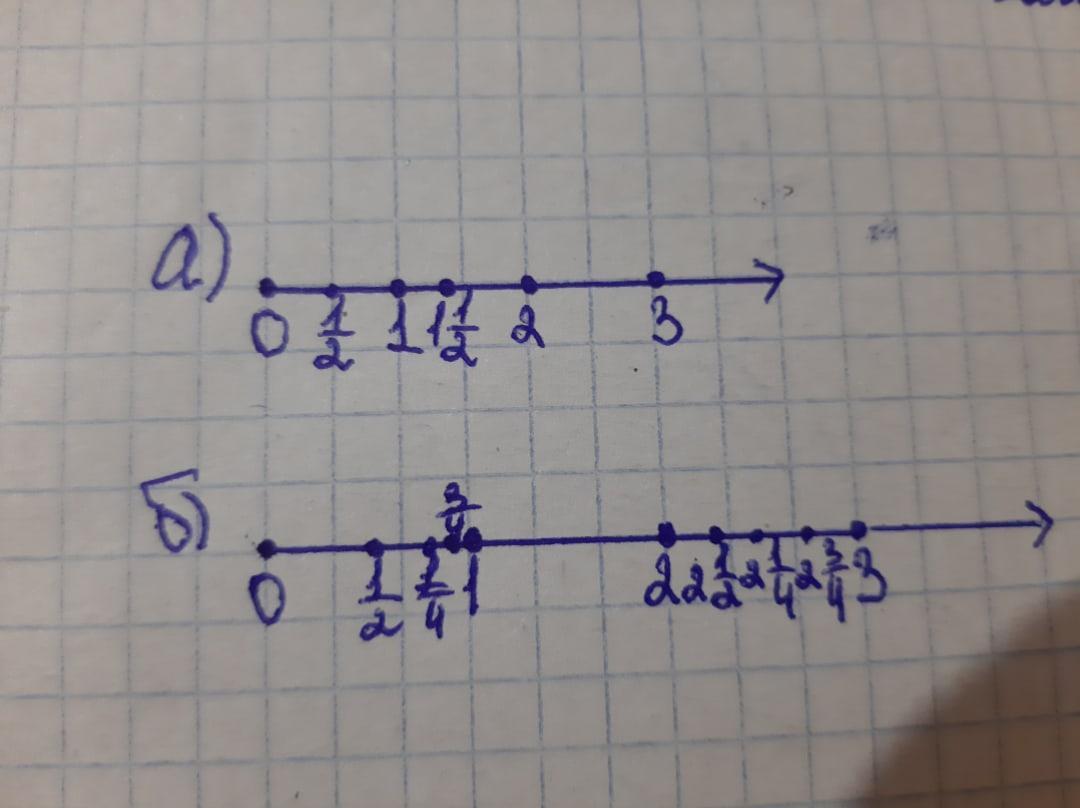 а)
0 1/2 1 1 1/2 2 3
б)
3/4
0 1/2 1/4 1 2 2 1/2 2 1/4 2 3/4 3